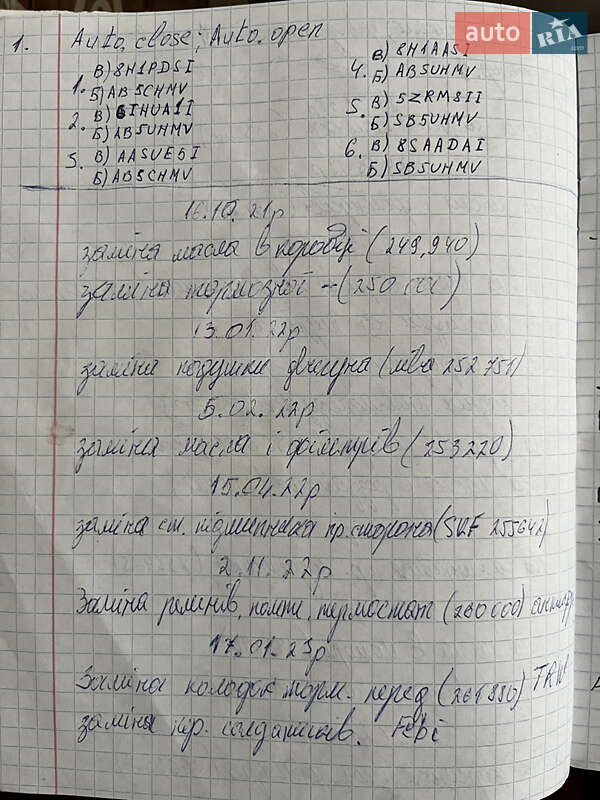 auto RIA.com
1. Auto. close; Auto. open
1. В) 8H1PDSI
Б) ABSCHMV
2. В) 6IHUA1I
Б) ABSUHMV
3. В) AASVE5I
Б) ABSCHMV
4. В) 8H1AASI
Б) ABSUHMV
5. В) 5ZRM8II
Б) SBSUHMV
6. В) 8SAADAI
Б) SBSUHMV
16.10.21р
заміна масла в коробці (249,940)
заміна тормозної -- (250 000)
13.01.22р
заміна подушки двигуна (ліва 252 751)
5.02.22р
заміна масла і фільтрів (253220)
15.04.22р
заміна ст. підшипника пр. сторона (SKF 255642)
2.11.22р
Заміна ременів, помпи, термостат (260 000)
17.01.23р
Заміна колодок торм. перед (261 880)
заміна пр. сайлентів. Febi